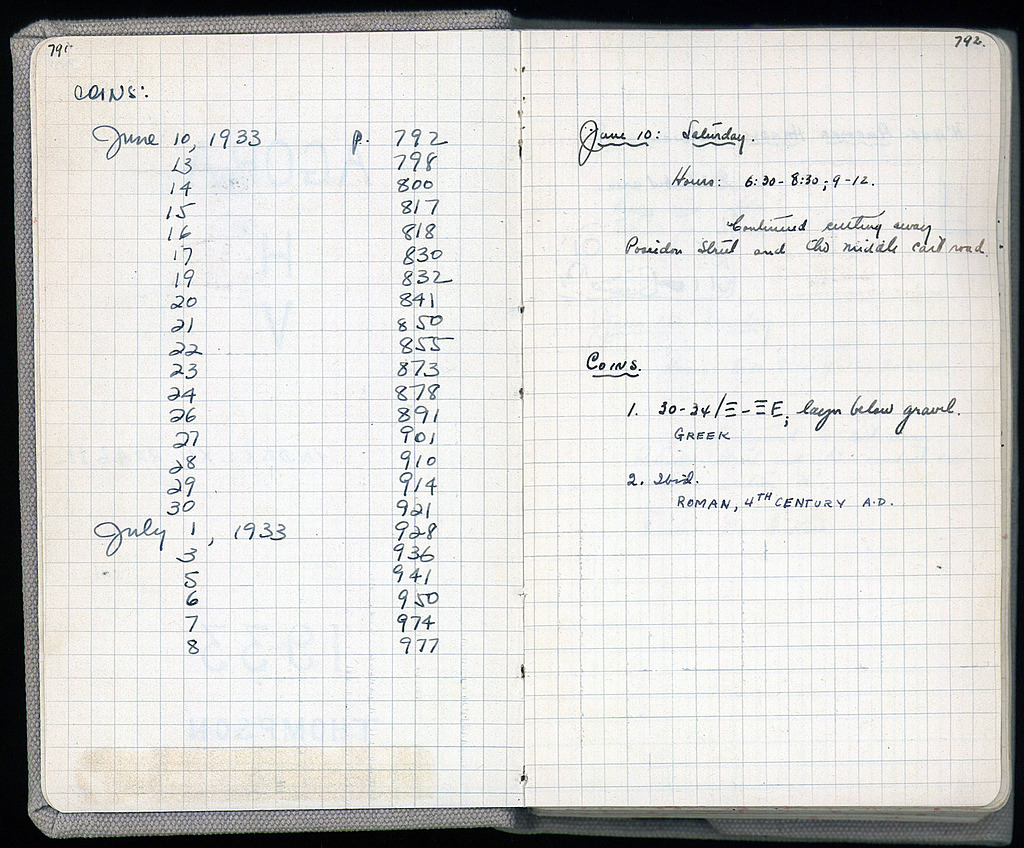 791
COINS:
June 10, 1933 p. 792
13 798
14 800
15 817
16 818
17 830
19 832
20 841
21 850
22 855
23 873
24 878
26 891
27 901
28 910
29 914
30 921
July 1, 1933 928
3 936
5 941
6 950
7 974
8 977
THOMPSON
792.
June 10: Saturday.
Hours: 6:30-8:30; 9-12.
Continued cutting away
Poseidon Street and the middle cart road.
Coins.
1. 30-34/Ξ-ΞE; layer below gravel.
GREEK
2. Ibid.
ROMAN, 4TH CENTURY A.D.